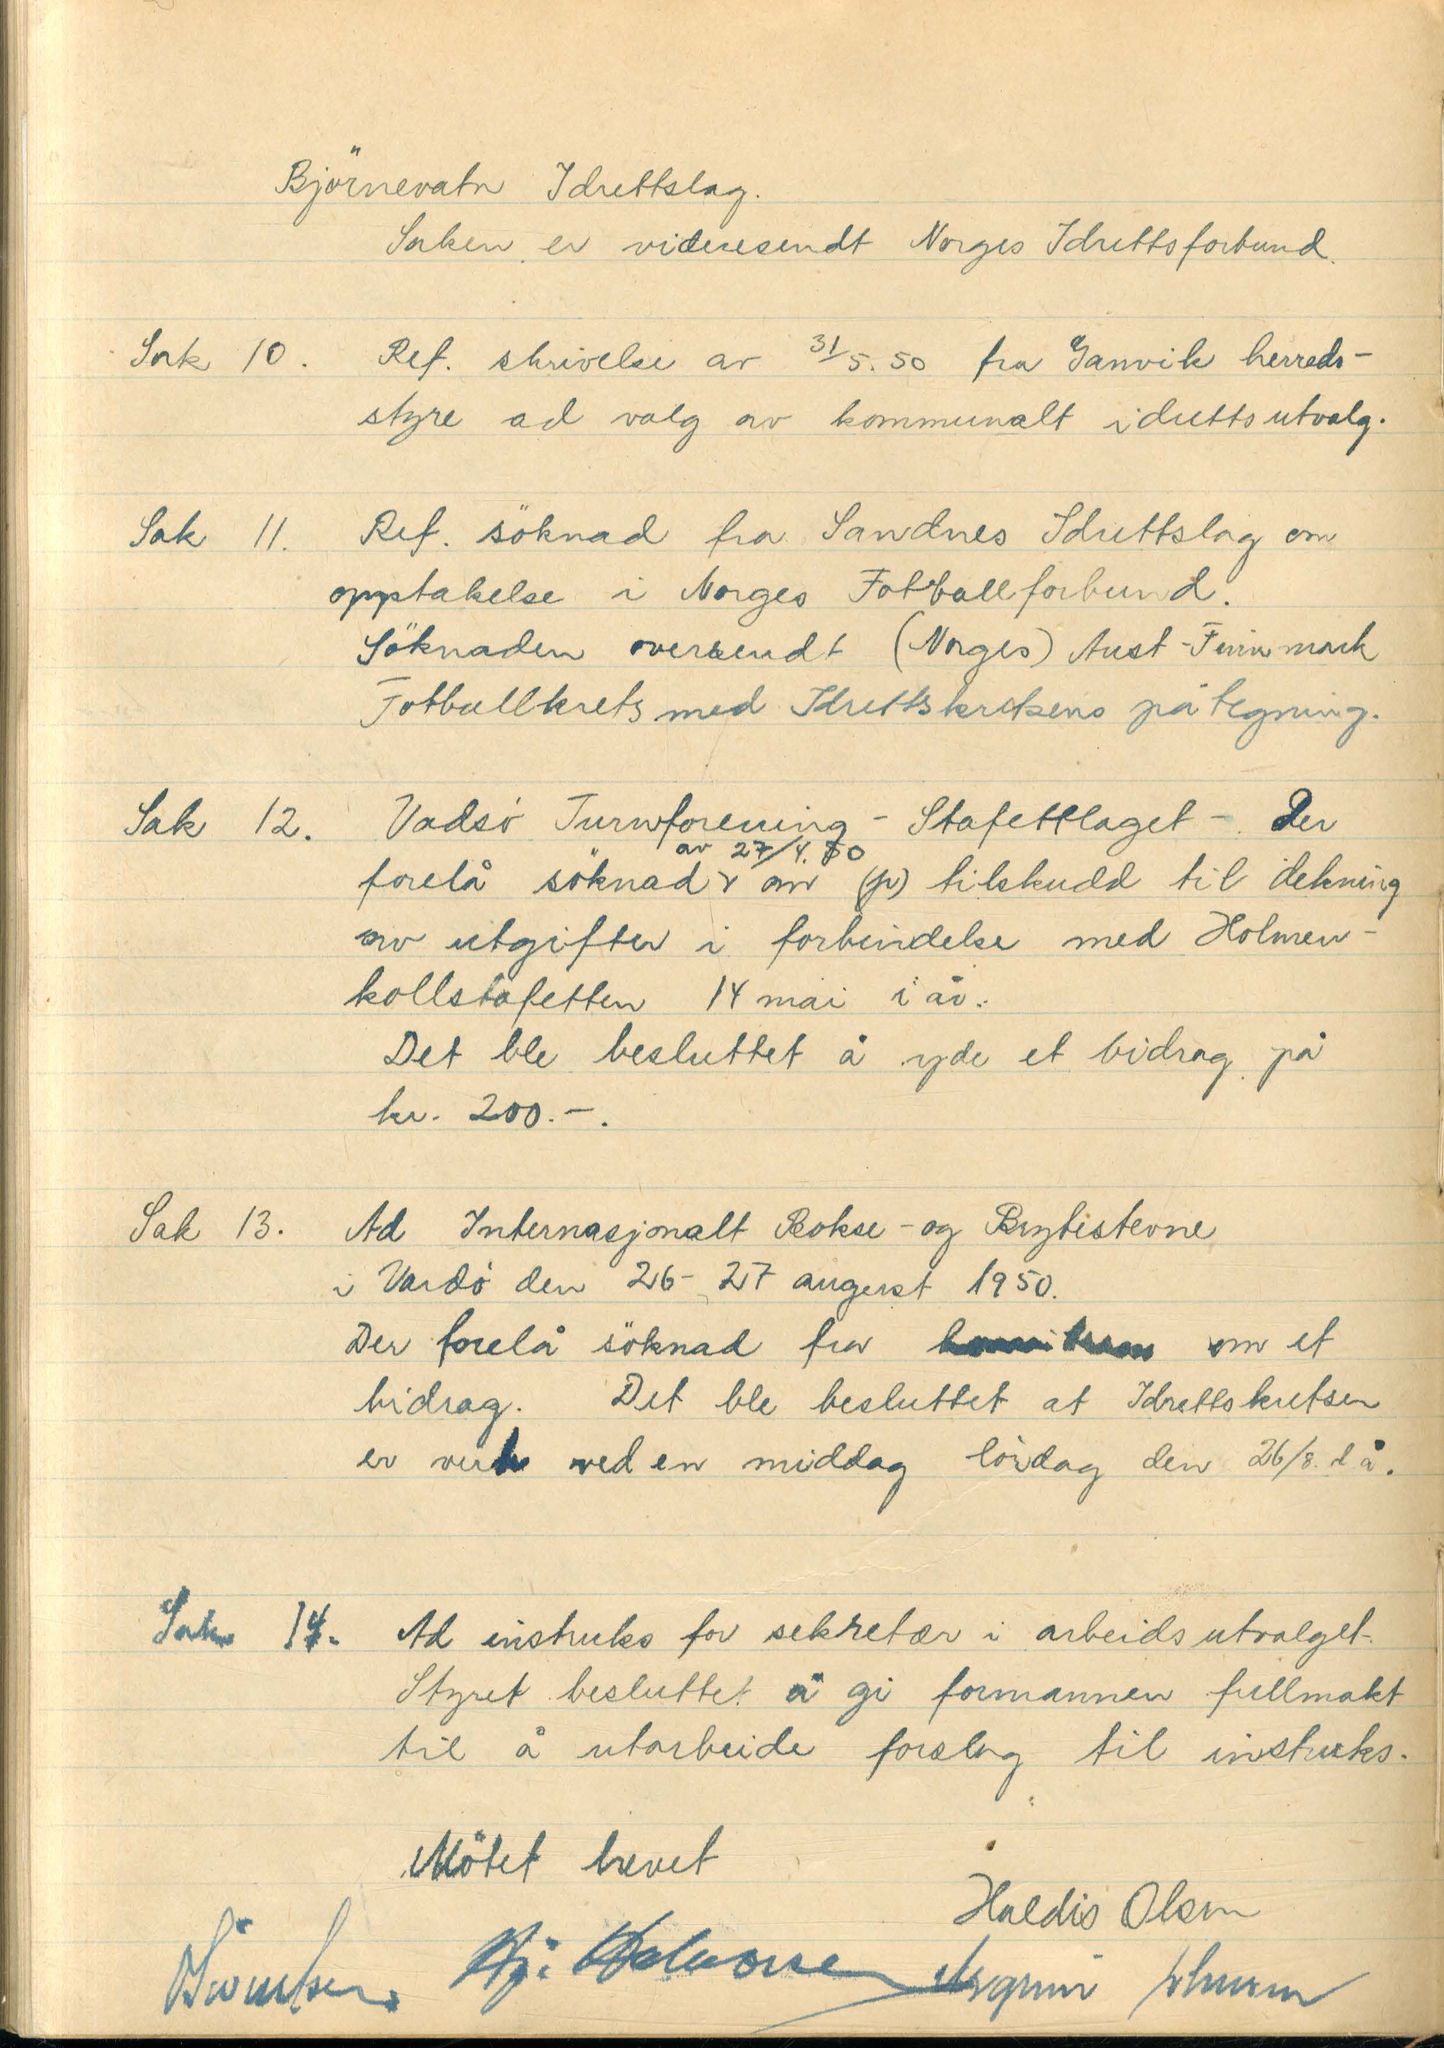 Björnevatn Idrettslag.
Saken er videresendt Norges Idrettsforbund.
Sak 10. Ref. skrivelse av 31/5.50 fra Gamvik herreds-
styre ad valg av kommunalt idrettsutvalg.
Sak 11. Ref. söknad fra Sandnes Idrettslag om
opptakelse i Norges Fotballforbund.
Söknaden oversendt (Norges) Aust-Finnmark
Fotballkrets med Idrettskretsens påtegning.
Sak 12. Vadsö Turnforening - Stafettlaget -. Der
av 27/4.50
forelå söknad om (p) tilskudd til dekning
av utgifter i forbindelse med Holmen-
kollstafetten 14 mai i år.
Det ble besluttet å yde et bidrag på
kr. 200.-.
Sak 13. Ad Internasjonalt Bokse- og Brytestevne
i Vardö den 26-27 august 1950.
Der forelå söknad fra om et
bidrag. Det ble besluttet at Idrettskretsen
er vert ved en middag lördag den 26/8. d å.
Sak 14. Ad instruks for sekretær i arbeidsutvalget.
Styret besluttet å gi formannen fullmakt
til å utarbeide forslag til instruks.
Mötet hevet
Haldis Olsen
Hj. Halvorsen